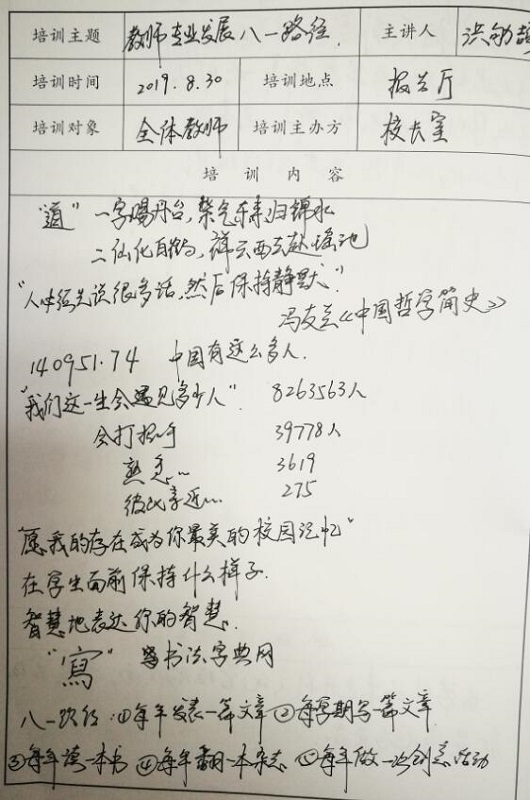 培训主题 教师专业发展八一路径. 主讲人 洪敏
培训时间 2019.8.30 培训地点 报告厅
培训对象 全体教师 培训主办方 校长室
培训内容
"道" 一字赐丹台,紫气东来归锦水
二仙化白鹤,祥云西去赴瑶池
"人必须先说很多话,然后保持静默."
冯友兰《中国哲学简史》
140951.74 中国有这么多人.
"我们这一生会遇见多少人". 8263563人
会打招呼 39778人
熟悉... 3619
彼此亲近... 275
愿我的存在成为你最美的校园记忆"
在学生面前保持什么样子.
智慧地表达你的智慧.
"寫" 书法字典网
八一路径:①每年发表一篇文章②每学期写一篇文章
③每年读一本书④每年翻一本杂志⑤每年做一次创意活动